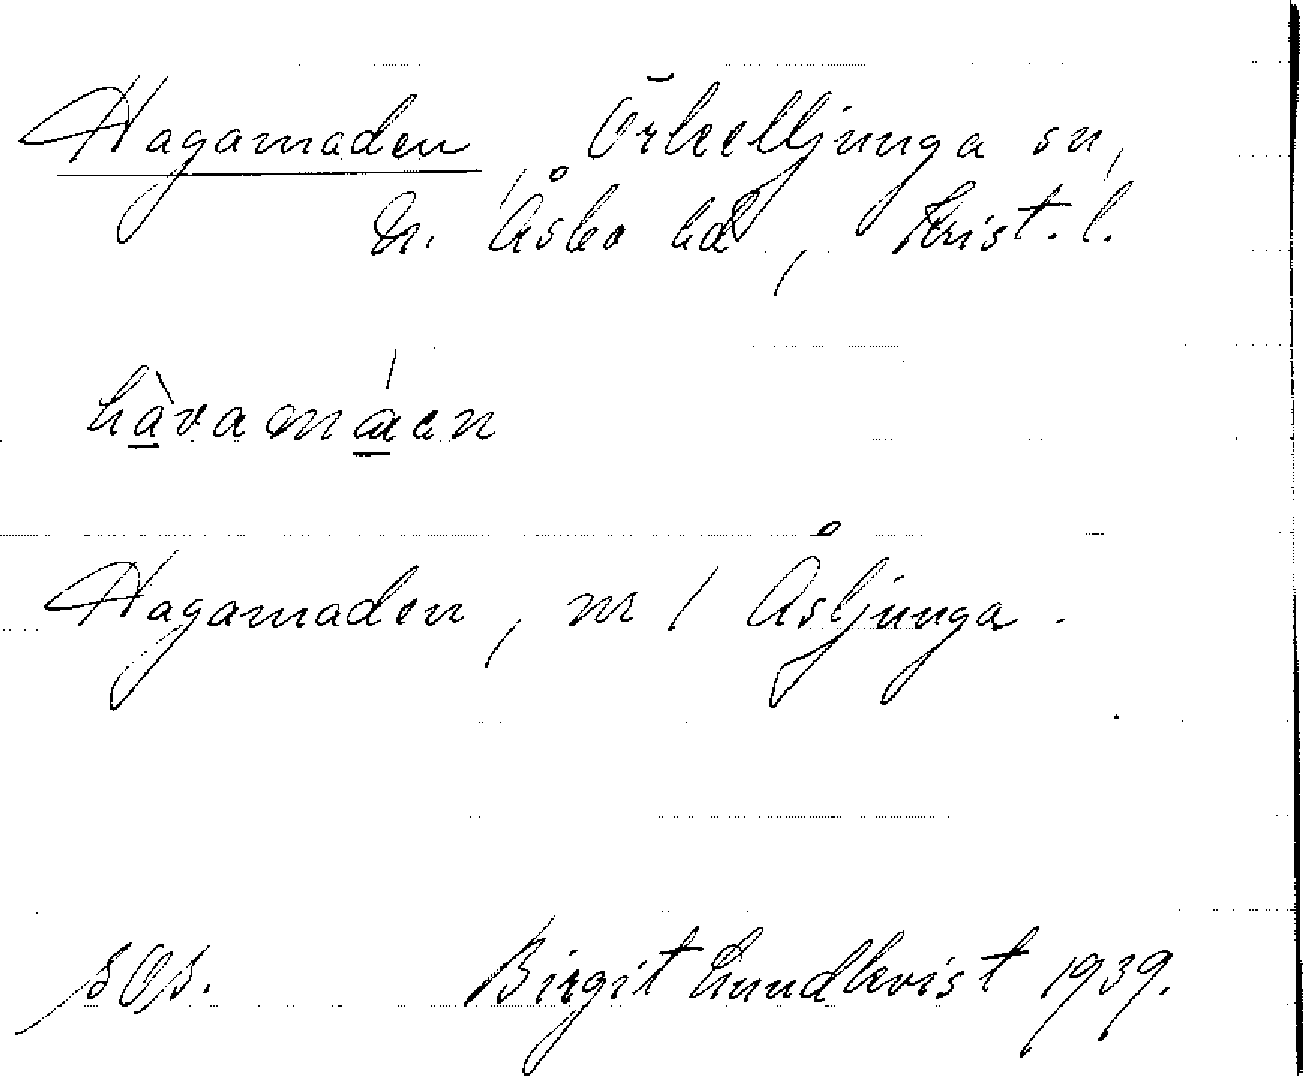 Hagamaden, Örkelljunga sn,
N. Åsbo hd, Krist. l.
hàvamáen
Hagamaden, nr 1 Åsljunga.
sOs. Birgit Lundkvist 1939.